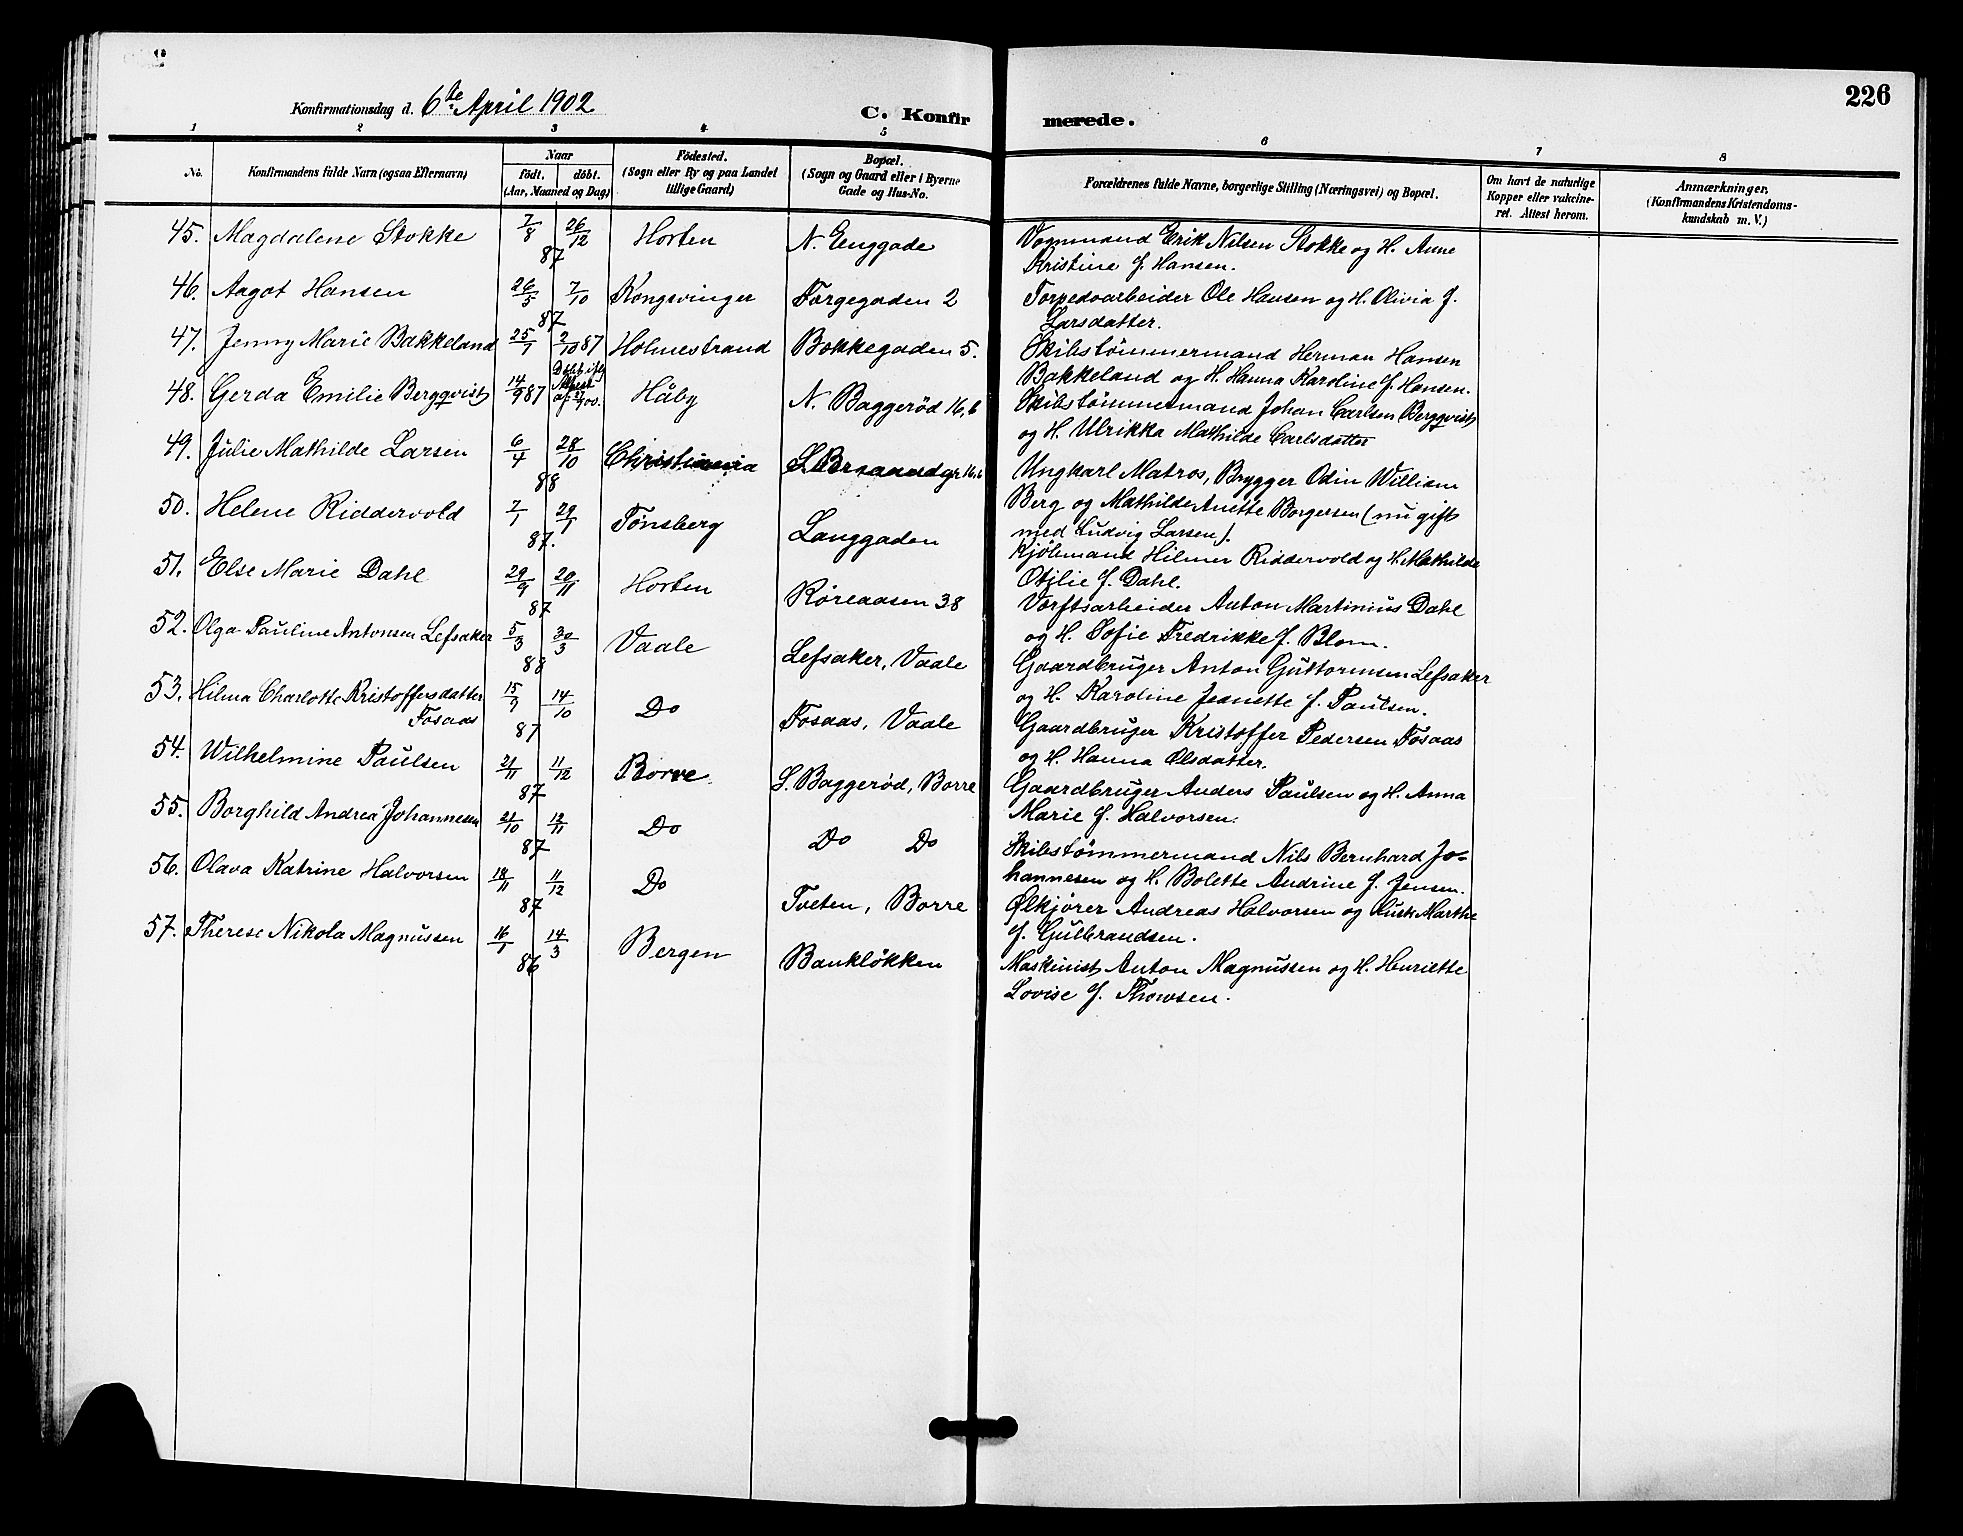 226
Konfirmationsdag d. 6te April 1902
C. Konfirmerede.
1 2 3 4 5 6 7 8
No.
Konfirmandens fulde Navn (ogsaa Efternavn)
Naar
Født. døbt.
(Aar, Maaned og Dag)
Fødested.
(Sogn eller By og paa Landet
tillige Gaard)
Bopæl.
(Sogn og Gaard eller i Byerne
Gade og Hus-No.
Forældrenes fulde Navne, borgerlige Stilling (Næringsvei) og Bopæl.
Om havt de naturlige
Kopper eller vakcine-
ret. Attest herom.
Anmærkninger.
(Konfirmandens Kristendoms-
kundskab m. V.)
45. Magdalene Stokke 7/8 26/12 87 Horten N. Enggade Vognmand Erik Nilsen Stokke og H. Anne
Kristine f. Hansen.
46. Aagot Hansen 26/5 7/10 87 Kongsvinger Torgegaden 2 Torpedoarbeider Ole Hansen og H. Olivia f.
Larsdatter.
47. Jenny Marie Bakkeland 25/1 2/10 87 Holmestrand Bakkegaden 5. Skibstømmermand Herman Hansen
Bakkeland og H. Hanna Karoline f. Hansen.
48. Gerda Emilie Bergqvist 14/9 87 Håby N. Baggerød 16,b Skibstømmermand Johan Carlsen Bergqvist
og H. Ulrikka Mathilde Carlsdatter
49. Julie Mathilde Larsen 6/4 28/10 88 Christiania 16,b Ungkarl Matros, Brygger Odin William
Berg og Mathilde Anette Borgersen (nu gift
med Ludvig Larsen).
50. Helene Riddervold 7/1 29/1 87. Tønsberg Langgaden Kjølmand Hilmer Riddervold og H. Mathilde
Otjlie f. Dahl.
51. Else Marie Dahl 29/9 20/11 87 Horten Røreaasen 38 Værftsarbeider Anton Martinius Dahl
og H. Sofie Fredrikke f. Blom.
52. Olga Pauline Antonsen Lefsaker 5/3 30/3 88 Vaale Lefsaker, Vaale Gaardbruger Anton Guttormsen Lefsaker
og H. Karoline Jeanette f. Paulsen.
53. Hilma Charlotte Kristoffersdatter
Fosaas 15/9 14/10 87 Do Fosaas, Vaale Gaardbruger Kristoffer Pedersen Fosaas
og H. Hanna Olsdatter.
54. Wilhelmine Paulsen 21/11 11/12 87 Borre. S. Baggerød, Borre Gaardbruger Anders Paulsen og H. Anna
Marie f. Halvorsen.
55. Borghild Andrea Johannesen 21/10 12/11 87 Do Do Do Skibstømmermand Nils Bernhard Jo-
hannesen og H. Bolette Andrine f. Jensen.
56. Olava Katrine Halvorsen 18/11 11/12 87 Do Tveten, Borre Ølkjører Andreas Halvorsen og Hust. Marthe
f. Gulbrandsen.
57. Therese Nikola Magnussen 16/1 14/3 86 Bergen Bankløkken Maskinist Anton Magnussen og H. Henriette
Lovise f. Thowsen.